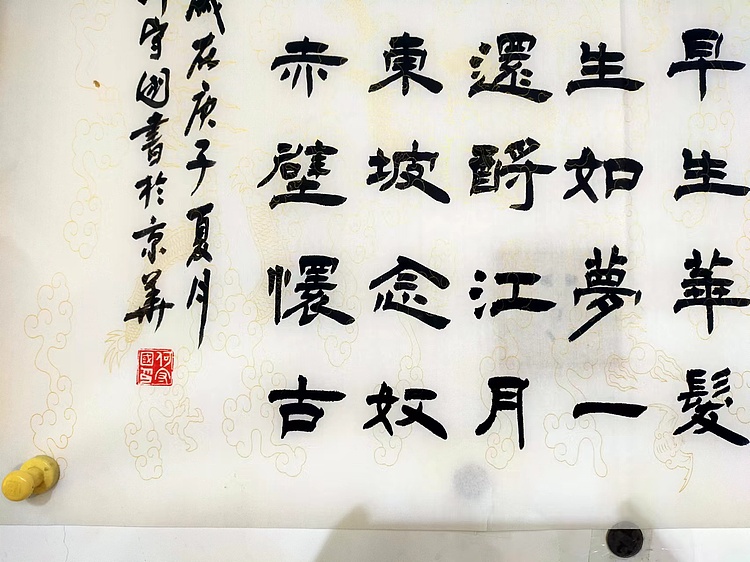 早生華髮
生如夢一
還酹江月
東坡念奴
赤壁懷古
歲在庚子夏月
守國書於京華
何守國印